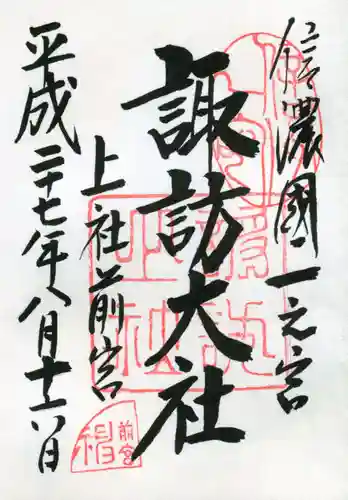 信濃國一之宮
諏訪大社
上社前宮
平成二十七年八月十六日
前宮